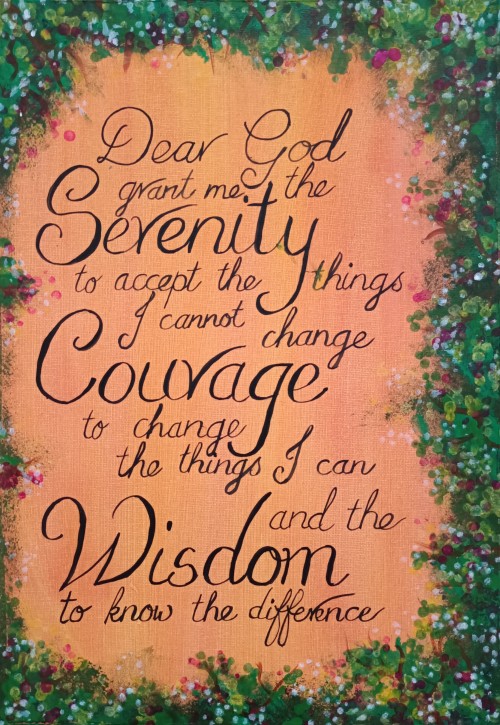 Dear God
grant me the
Serenity
to accept the things
I cannot change
Courage
to change
the things I can
and the
Wisdom
to know the difference